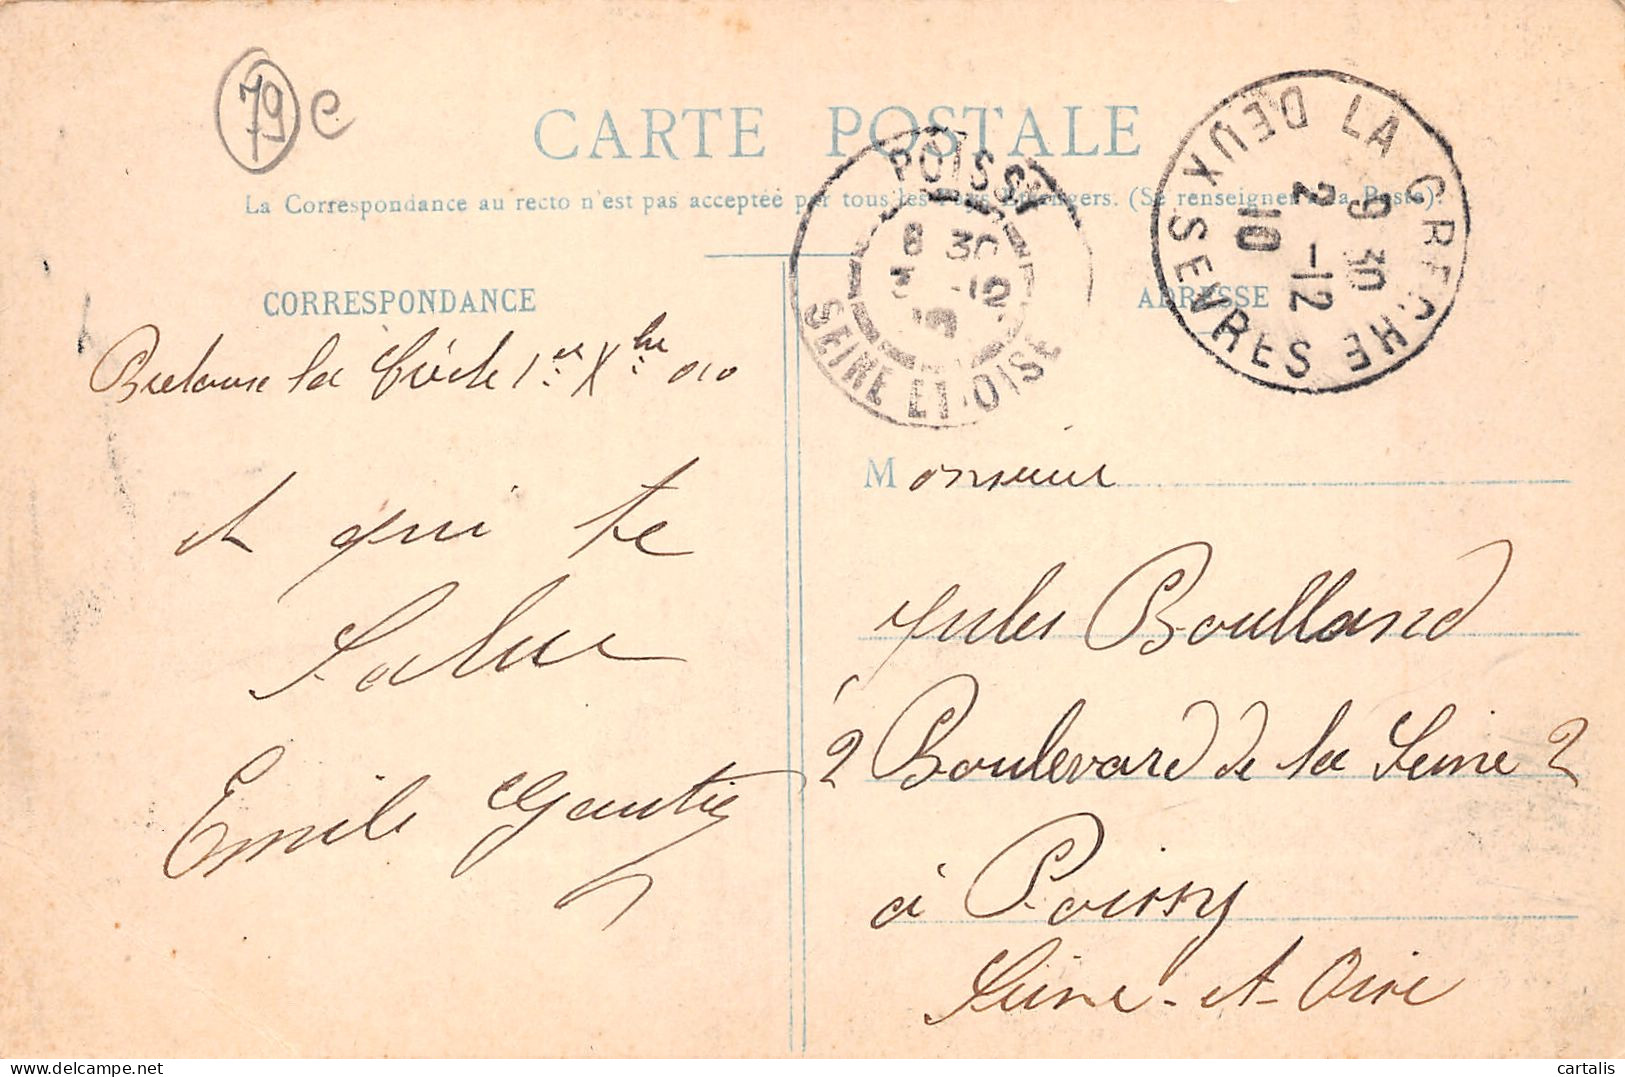 79 C
CARTE POSTALE
La Correspondance au recto n'est pas acceptée par tous les Pays Etrangers. (Se renseigner à la Poste).
POISSY
8 30
3 -12
10
SEINE ET OISE
LA CRECHE
9 30
2 -12
10
DEUX SEVRES
CORRESPONDANCE
ADRESSE
la Crèche 1er Xbre 010
et qui te
Salue
Emile Gautier
Monsieur
Jules Boulland
2 Boulevard de la Seine 2
à Poissy
Seine-et-Oise
cartalis
delcampe.net